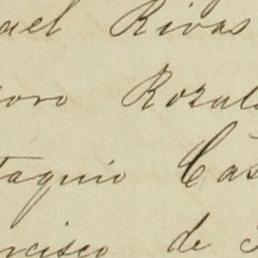 ael Rivas
oro Rozal
taquio Cas
ncisco de